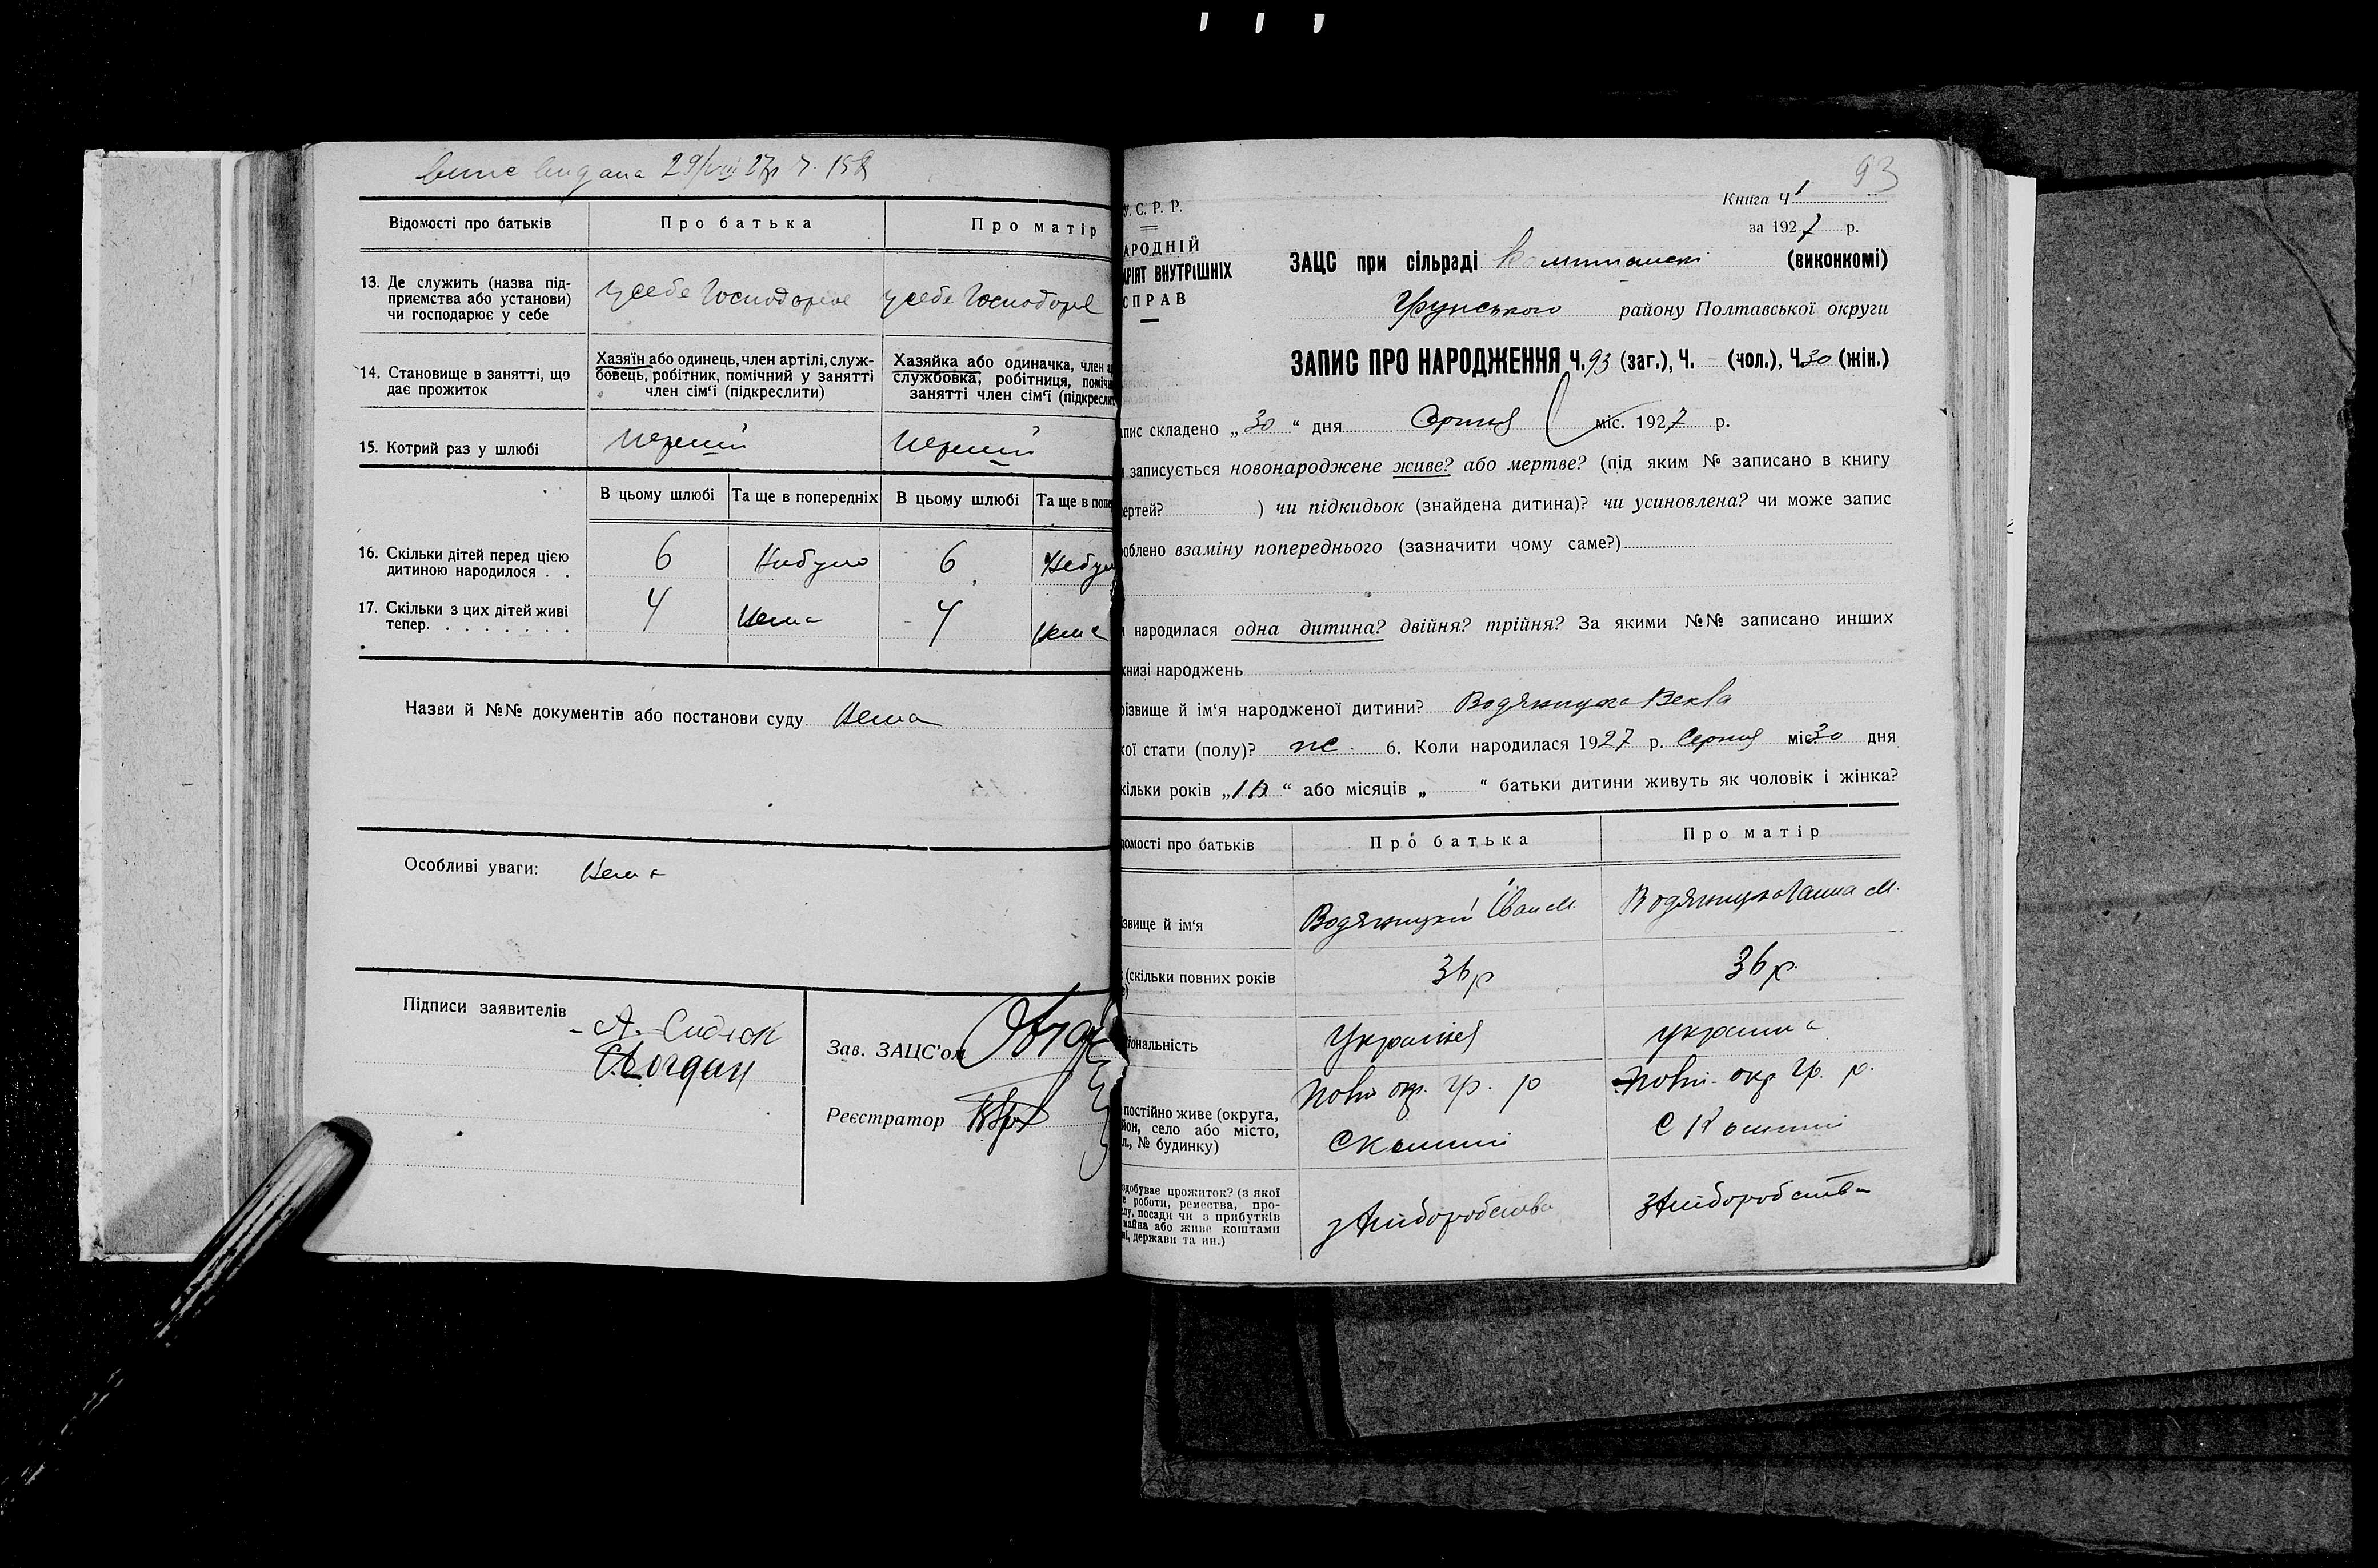 29/VIII 27р ч. 158
Відомості про батьків
Про батька
Про матір
13. Де служить (назва під-
приємства або установи)
чи господарює у себе
у себе Господорює
у себе Господорює
14. Становище в занятті, що
дає прожиток
Хазяїн або одинець, член артілі, служ-
бовець, робітник, помічний у занятті
член сім'ї (підкреслити)
Хазяйка або одиначка, член а
службовка, робітниця, поміч
занятті член сім'ї (підкресли
15. Котрий раз у шлюбі
перший
перший
В цьому шлюбі
Та ще в попередніх
В цьому шлюбі
Та ще в попе
16. Скільки дітей перед цією
дитиною народилося . .
6
Небуло
6
Небул
17. Скільки з цих дітей живі
тепер. . . . . . . .
4
Нема
4
Нема
Назви й №№ документів або постанови суду Нема
Особливі уваги: Нема
Підписи заявителів
А.
Богдан
Зав. ЗАЦС'ом
Реєстратор
93
Книга Ч 1
за 1927 р.
У.С.Р.Р.
АРОДНІЙ
АРІЯТ ВНУТРІШНІХ
СПРАВ
ЗАЦС при сільраді (виконкомі)
Грунського району Полтавської округи
ЗАПИС ПРО НАРОДЖЕННЯ Ч. 93 (заг.), Ч. — (чол.), Ч. 30 (жін.)
апис складено „30“ дня Серпня міс. 1927 р.
и записується новонароджене живе? або мертве? (під яким № записано в книгу
ертей? ) чи підкидьок (знайдена дитина)? чи усиновлена? чи може запис
облено взаміну попереднього (зазначити чому саме?)
и народилася одна дитина? двійня? трійня? За якими №№ записано инших
книзі народжень
різвище й ім'я народженої дитини? Водяницка Векла
кої стати (полу)? ж. 6. Коли народилася 1927 р. Серпня міс. 30 дня
кільки років „16“ або місяців „ “ батьки дитини живуть як чоловік і жінка?
домості про батьків
Про батька
Про матір
ізвище й ім'я
Водяницкий Іван М.
Водяницка Ганна М.
(скільки повних років
36 р
36 р.
іональність
Украінец
украинка
постійно живе (округа,
йон, село або місто,
л., № будинку)
Полт. окр. Гр. р
С Комиші
Полт. окр Гр. р.
С Комиші
здобуває прожиток? (з якої
е роботи, ремества, про-
лу, посади чи з прибутків
майна або живе коштами
ні, держави та ин.)
з хліборобства
з хліборобства